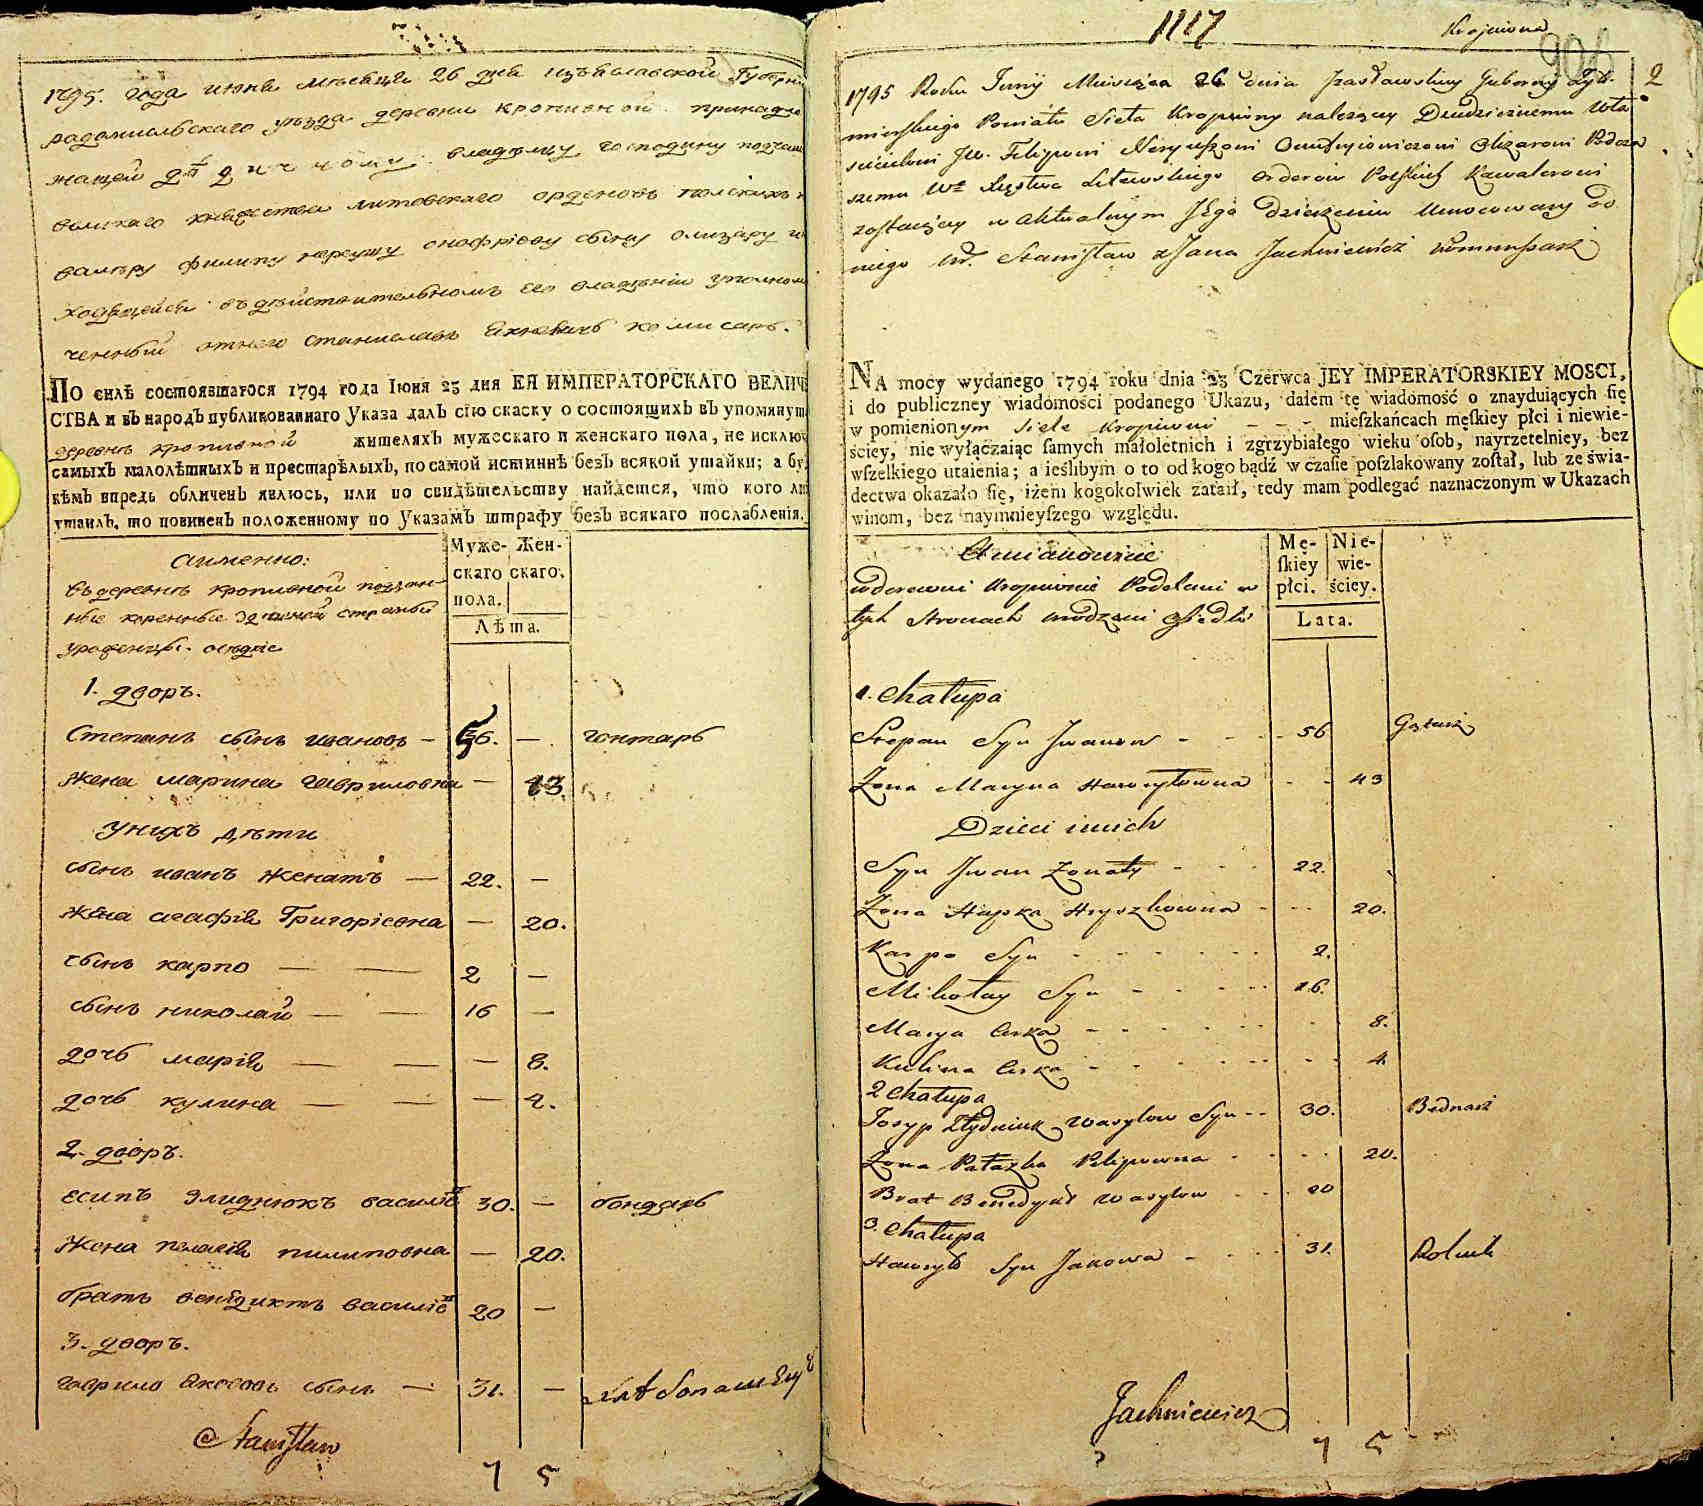 1795. года июня месеца 26 дня изъяславской Губерни
радомисльского уезда деревни кропивной принадле
жащей дѣдичному владелцу господину подчаш
великаго княжества литовскаго орденовъ полскихъ
валеру филипу нереушу онофріеву сыну олизару
ходящейся въ действительномъ его владеніи уполномо
ченный отнего станиславъ яхневичъ комисаръ.
ПО силѣ состоявшагося 1794 года Іюня 23 дня ЕЯ ИМПЕРАТОРСКАГО ВЕЛИЧЕ
СТВА и въ народъ публикованнаго Указа далъ сію скаску о состоящихъ въ упомянут
деревне кропивной жителяхъ мужескаго и женскаго пола, не исключ
самыхъ малолѣтныхъ и престарѣлыхъ, по самой истиннѣ безъ всякой утайки; а бу
кѣмъ впредь обличенъ явлюсь, или по свидѣтельству найдется, что кого ли
утаилъ, то повиненъ положенному по Указамъ штрафу безъ всякаго послабленія.
аименно:
въ деревне кропивной поддан-
ные коренные здешней страны
уроженцы оседлые
Муже- Жен-
скаго скаго.
пола.
Лѣта.
1. дворъ.
Степанъ сынъ ивановъ — 56. — гонтаръ
жена марина гавриловна — 43.
унихъ дѣти
сынъ иванъ женатъ — 22. —
жена агафія Григоріевна — 20.
сынъ карпо — — 2 —
сынъ николай — — 16 —
дочь марія — — — 8.
дочь кулина — — — 4.
2. дворъ.
есипъ злиднюкъ василіе 30. — бондаръ
жена пелагія пилиповна — 20.
братъ венедиктъ василіе 20 —
3. дворъ.
гаврило яковов сынъ — 31. —
Stanisław
7 5
1117
Kropiwna
2
1795 Roku Junij Miesiąca 26 dnia Izasławskiey Guberny Żyto-
mirskiego Powiatu Sieła Kropiwny należący Dziedzicznemu Wła
scicielowi Jw. Filipowi Neryuszowi Onufryiowiczowi Olizarowi Podcza
szemu Wo Xięstwa Litewskiego Orderow Polskich Kawalerowi
zostaiący w aktualnym Jego Dzierzeniu Umocowany od
niego W. Stanisław z Jana Jachniewicz kommissarz
NA mocy wydanego 1794 roku dnia 23 Czerwca JEY IMPERATORSKIEY MOSCI,
i do publiczney wiadomości podanego Ukazu, dałem tę wiadomość o znayduiących się
w pomienionym Siele Kropiwni - - - mieſzkańcach męſkiey płci i niewie-
ściey, nie wyłączaiąc ſamych małoletnich i zgrzybiałego wieku oſob, nayrzetelniey, bez
wſzelkiego utaienia; a ieślibym o to od kogo bądź w czaſie poſzlakowany zoſtał, lub ze świa-
dectwa okazało ſię, iżem kogokolwiek zataił, tedy mam podlegać naznaczonym w Ukazach
winom, bez naymnieyſzego względu.
A mianowicie
w derewni Kropiwnie Poddani w
tych stronach urodzeni osiedli
Mę- Nie-
ſkiey wie-
płci. ściey.
Lata.
1. Chałupa
Stepan Syn Iwanow - - - - 56 Gątarz
Żona Maryna Hawryłowna - - 43
Dzieci unich
Syn Iwan żonaty - - - 22.
Żona Hapka Hryszkowna - - - 20.
Karpo Syn - - - - - - 2.
Mikołay Syn - - - - - 16.
Marya Curka - - - - - - - 8.
Kulina Curka - - - - - - - - 4.
2 Chałupa
Josyp Złydniuk Wasylow Syn - - 30. Bednarz
Żona Połazka Pilipowna - - - - 20.
Brat Benedykt Wasylow - - - 20
3. Chałupa
Hawryło Syn Jakowa - - - - 31. Rolnik
Jachniewicz
7 5